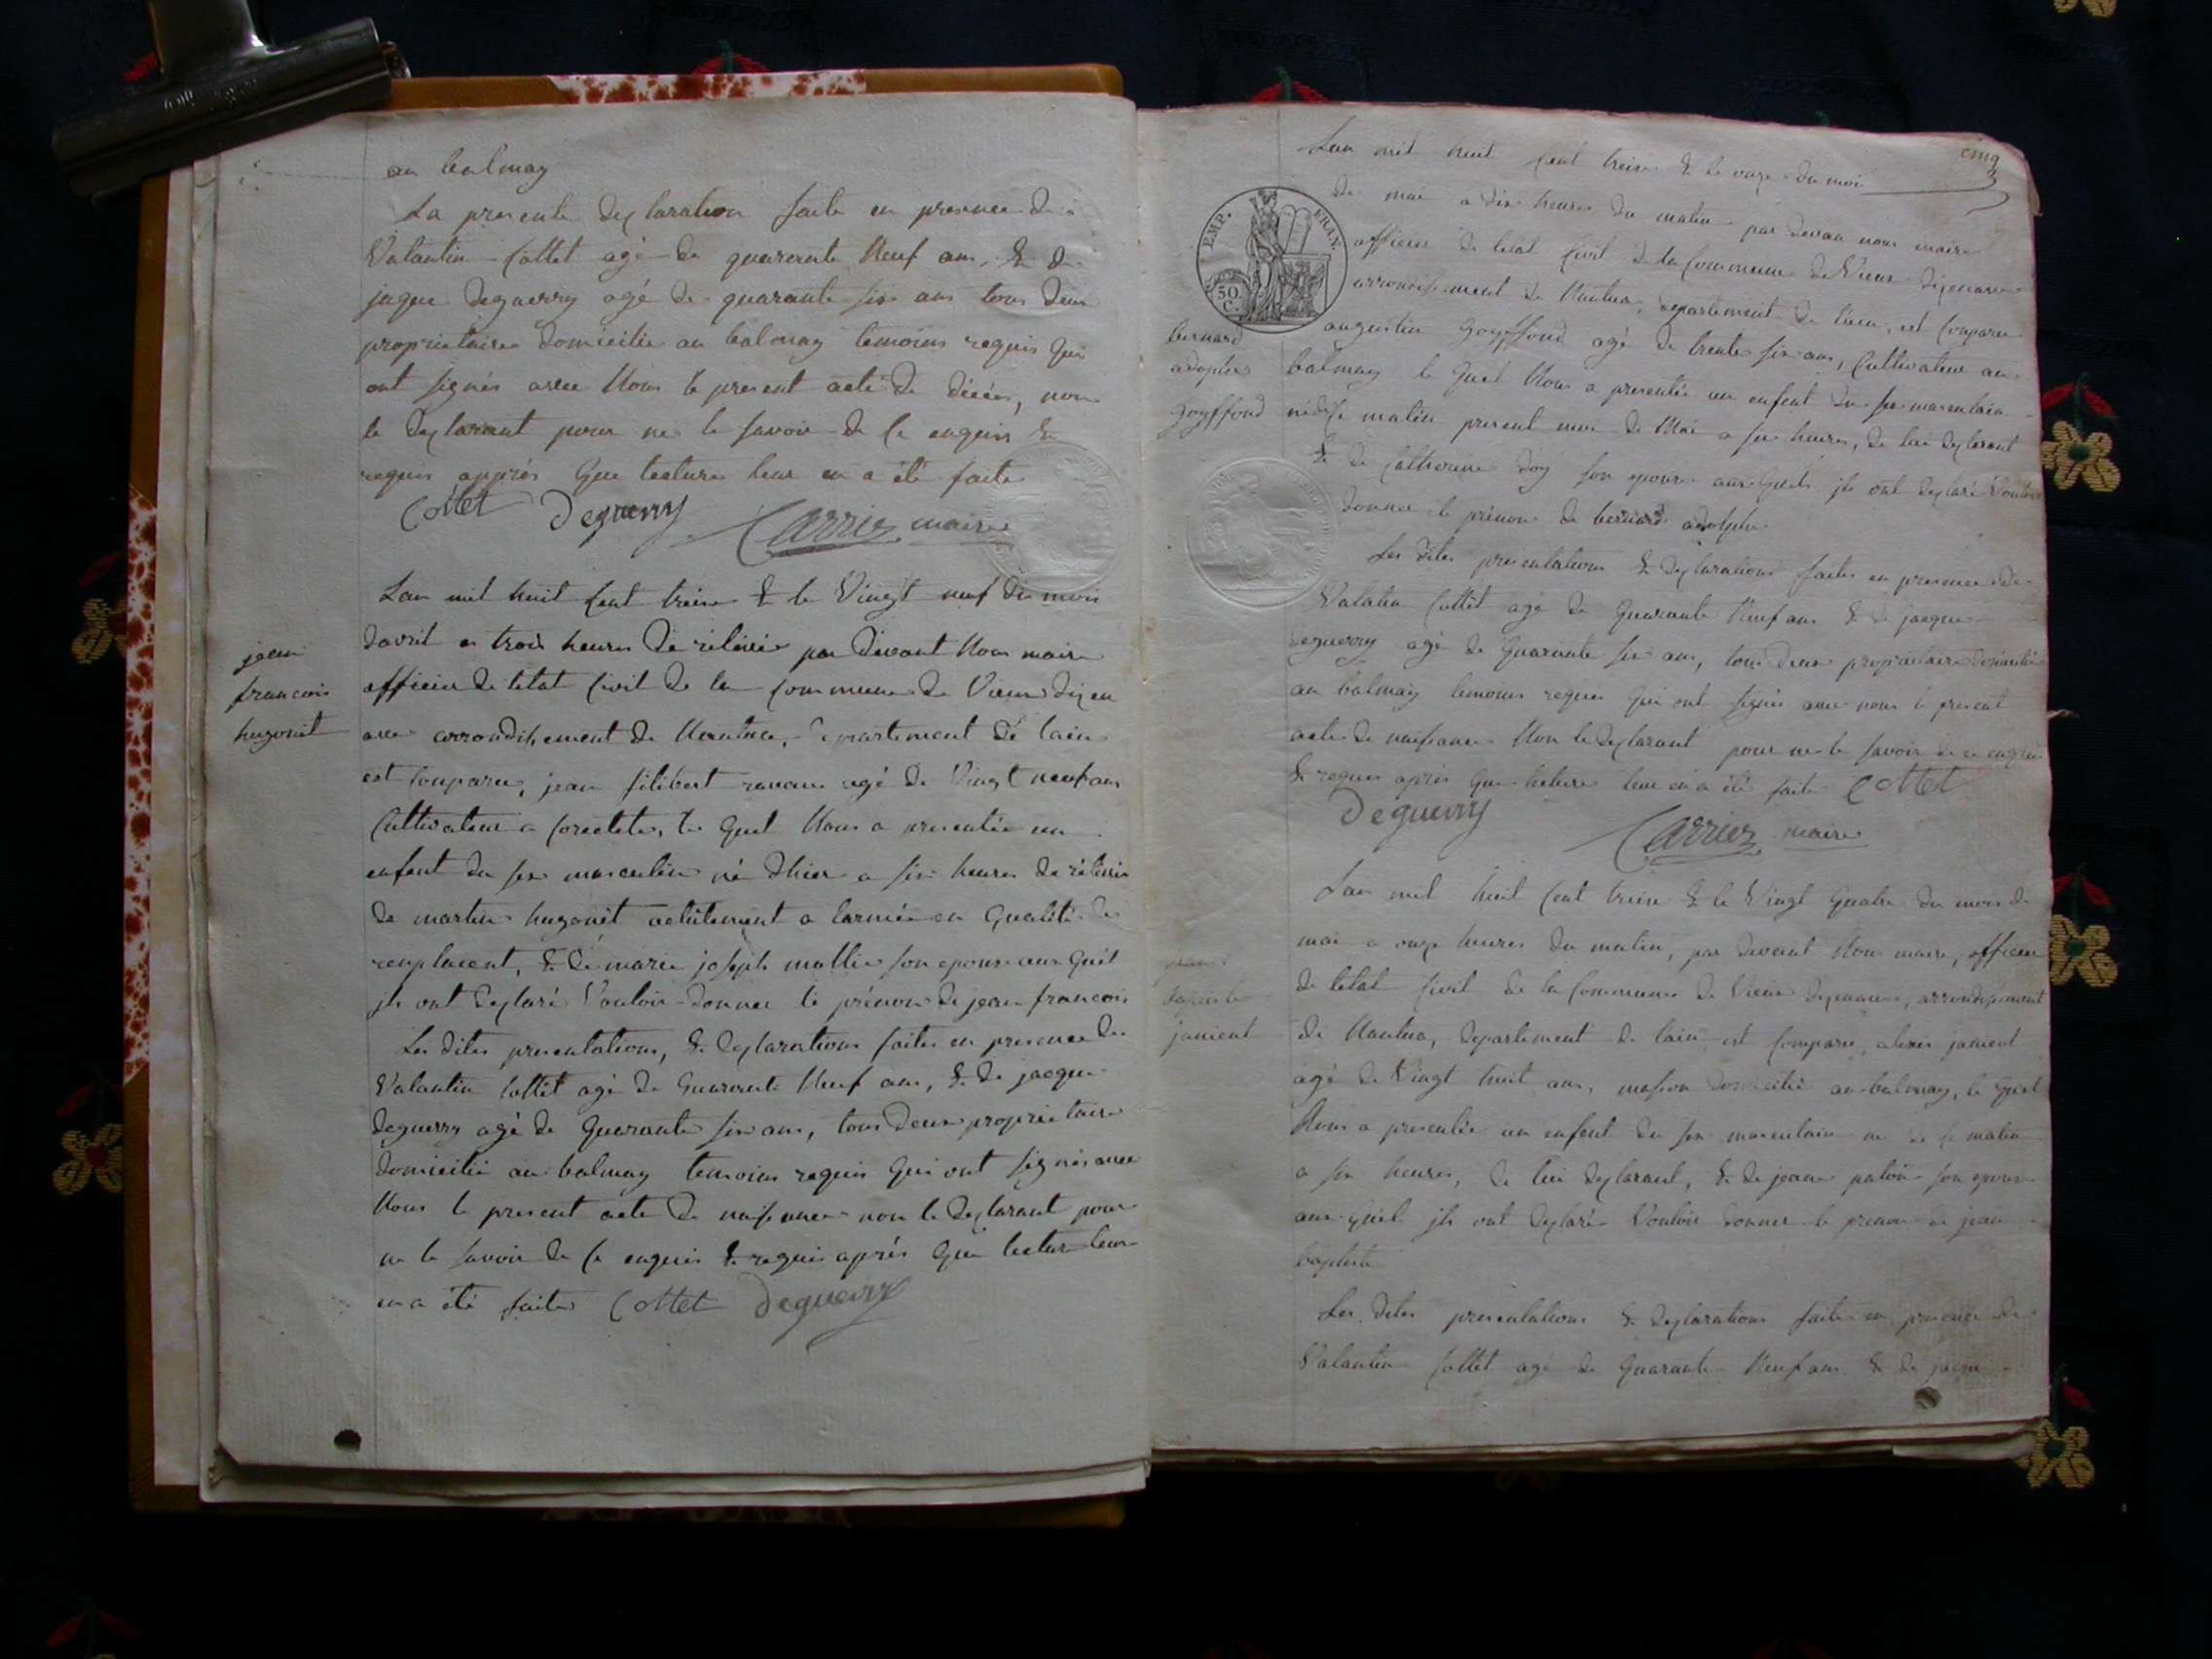 au balmay
La presente declaration faite en presence de
Valantin Cottet agé de quarente Neuf ans, & de
jaque deguerry agé de quarante six ans tous deux
proprietaire domicilié au balmay temoins requis qui
ont signés avec Nous le present acte de décés, non
le declarant pour ne le savoir de ce enquis &
requis apprés que lecture leur en a été faite
Cottet Deguerry Carrier maire
jean
francois
hugonit
Lan mil huit cent treize & le Vingt neuf du mois
davril a trois heures de relévée par devant Nous maire
officier de letat civil de la commune de Vieux dizen
ave arrondissement de Nantua, departement de lain
est comparu, jean filibert ravaux agé de Vingt neuf ans
Cultivateur a le quel Nous a presentée un
enfant du sex masculin né dhier a six heures de rélévée
de martin hugonit actuelement a larmée en qualité de
remplacent, & de marie joseph mollie son epouse aux quel
ils ont declaré Vouloir donner le prénom de jean francois
Les dites presentations, & declarations faites en presence de
Valantin Cottet agé de quarente Neuf ans, & de jacque
deguerry agé de quarante six ans, tous deux proprietaire
domicilié au balmay temoins requis qui ont signés avec
Nous le present acte de naissance non le declarant pour
ne le savoir de ce enquis & requis aprés que lecture leur
en a été faite Cottet Deguerry
cinq
Lan mil huit cent treize & le onze du mois
de mai a dix heures du matin par devan nous maire
EMP. FRAN.
50.
C.
officier de letat civil de la Commune de Vieux dizenave
arrondissement de Nantua, departement de lain, est comparu
bernard
adolphe
Goyffond
augustin Goyffond agé de trente six ans, Cultivateur au
balmay le quel Nous a presentée un enfant du sex masculain
né de ce matin present moi de Mai a six heures, de lui declarant
& de Catherine doy son epouse aux quels ils ont declaré Vouloir
donner le prénom de bernard adolphe
Les dites presentations & declarations faites en presence de
Valatin Cottet agé de quarante Neuf ans & de jacque
deguerry agé de quarante six ans, tous deux proprietaire domicilié
au balmay temoins requis qui ont signés avec nous le present
acte de naissance Non le declarant pour ne le savoir de ce enquis
& requis aprés que lecture leur en a été faite Cottet
Deguerry Carrier maire
jean
baptiste
jament
Lan mil huit cent treize & le Vingt quatre du mois de
mai a onze heures du matin, par devant Nous maire, officier
de letat civil de la Commune de Vieux dizenave, arrondissement
de Nantua, departement de lain est comparu, alexis jament
agé de Vingt huit ans, masson domicilié au balmay, le quel
Nous a presentée un enfant du sex masculain né de ce matin
a six heures, de lui declarant, & de jeane son epouse
aux quel ils ont declaré Vouloir donner le prenom de jean
baptiste
Les dites presentations & declarations faites en presence de
Valantin Cottet agé de quarante Neuf ans & de jacque